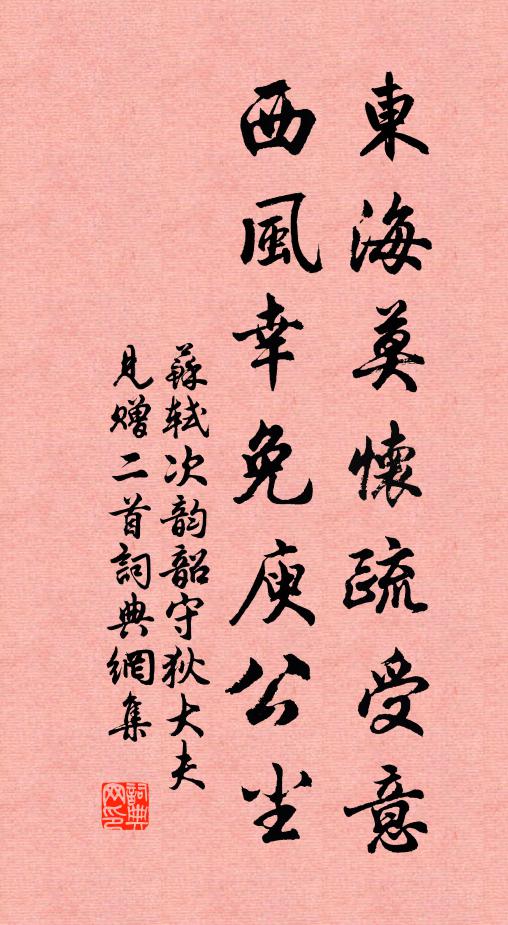 東海莫懷疏受意
西風幸免庾公尘
蘇轼次韵韶守狄大夫
見赠二首詞典網集
詞典
网印